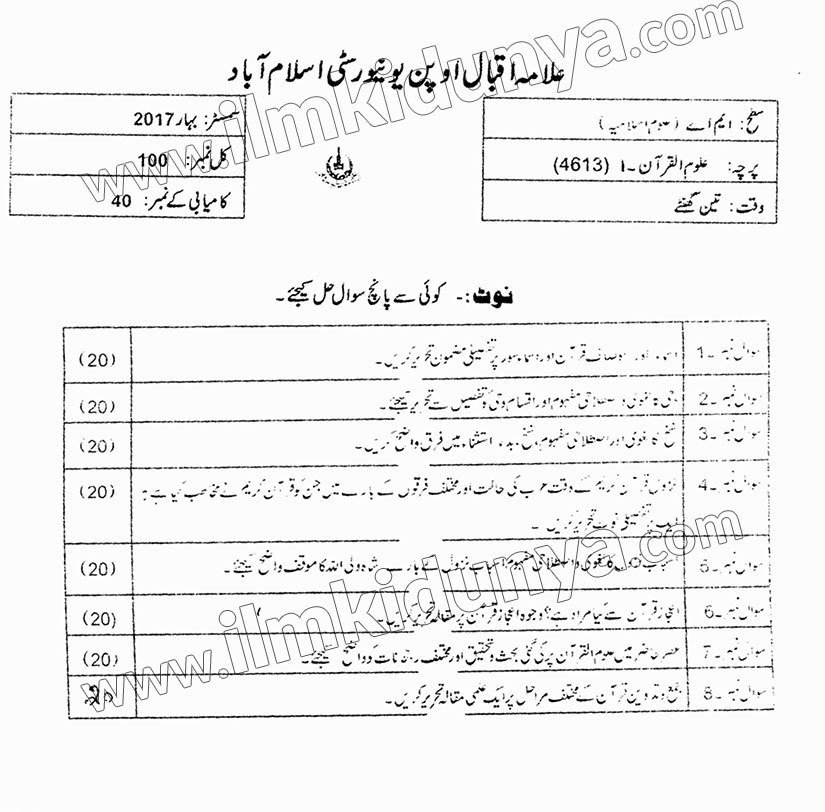 علامہ اقبال اوپن یونیورسٹی اسلام آباد
سطح: ایم اے (علوم اسلامیہ)
سمسٹر: بہار 2017
پرچہ: علوم القرآن ۔ I (4613)
کل نمبر: 100
وقت: تین گھنٹے
کامیابی کے نمبر: 40
نوٹ:- کوئی سے پانچ سوال حل کیجئے۔
سوال نمبر ۔1 اور قرآن اور اسماء سور پر تفصیلی مضمون تحریر کریں۔ (20)
سوال نمبر ۔2 وحی کا لغوی و اصطلاحی مفہوم اور اقسام وحی کو تفصیل سے تحریر کیجئے۔ (20)
سوال نمبر ۔3 نسخ کا لغوی اور اصطلاحی مفہوم، نسخ، بداء استثناء میں فرق واضح کریں۔ (20)
سوال نمبر ۔4 نزول قرآن کریم کے وقت عرب کی حالت اور مختلف فرقوں کے بارے میں جن کو قرآن کریم نے مخاطب کیا ہے (20)
تفصیلی نوٹ تحریر کریں ۔
سوال نمبر ۔5 کا لغوی و اصطلاحی مفہوم اسباب نزول کے بارے شاہ ولی اللہ کا موقف واضح کیجئے۔ (20)
سوال نمبر ۔6 اعجاز قرآن سے کیا مراد ہے؟ وجوہ اعجاز قرآن پر مقالہ تحریر کریں۔ (20)
سوال نمبر ۔7 عصر حاضر میں علوم القرآن پر کی گئی بحث و تحقیق اور مختلف رجحانات کو واضح کیجئے۔ (20)
سوال نمبر ۔8 جمع و تدوین قرآن کے مختلف مراحل پر ایک علمی مقالہ تحریر کریں۔
www.ilmkidunya.com
www.ilmkidunya.com